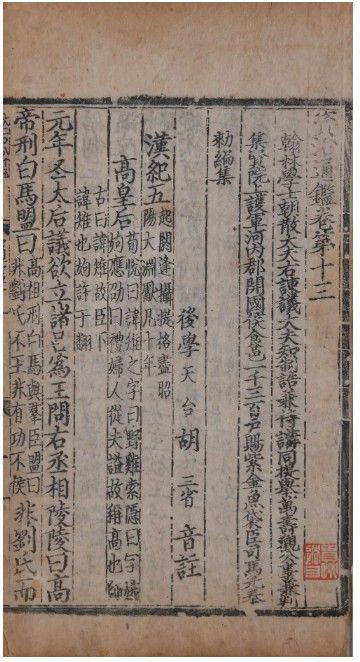 資治通鑑卷第十三
翰林學士朝散大夫右諫議大夫知制誥兼侍講同提舉萬壽觀公事兼判
集賢院上護軍河內郡開國侯食邑一千三百戶賜紫金魚袋臣司馬光奉
勑編集
後學天台胡三省音註
漢紀五
起閼逢攝提格盡昭
陽大淵獻凡十年
高皇后
荀恱曰諱雉之字曰野雞索隱曰字娥
姁應劭曰禮婦人從夫諡故稱高也師
古曰諱雉故臣下
諱雉也姁許于翻
元年冬太后議欲立諸呂為王問右丞相陵陵曰高
帝刑白馬盟曰
高祖刑白馬與羣臣盟曰
非劉氏不王非有功不侯
非劉氏而